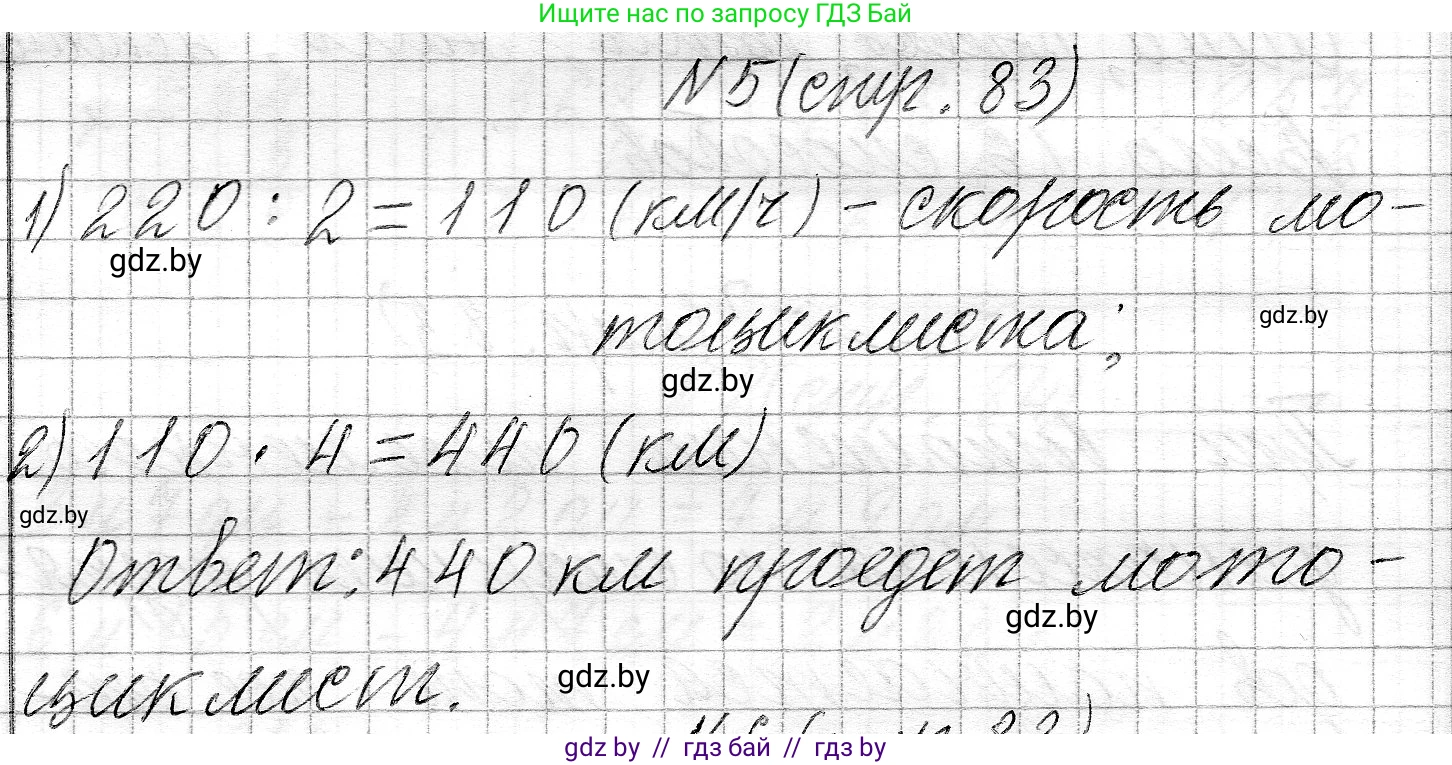 Ищите нас по запросу ГДЗ Бай
N 5 (стр. 83)
1) 220 : 2 = 110 (км/ч) - скорость мо-
gdz.by
тоциклиста; gdz.by
gdz.by
2) 110 · 4 = 440 (км)
gdz.by
Ответ: 440 км проедет мото-
gdz.by
циклист. gdz.by
gdz.by // гдз бай // гдз by